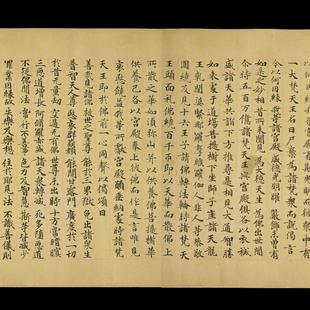 一大梵天王名曰尸棄為諸梵眾而說偈言
今以何因緣 我等諸宮殿 威德光明曜 嚴飾未曾有
如是之妙相 昔所未聞見 為大德天生 為佛出世間
尒時五百萬億諸梵天王與宮殿俱各以衣裓
盛諸天華共詣下方推尋是相見大通智勝
如來處于道場菩提樹下坐師子座諸天龍
王乾闥婆緊那羅摩睺羅伽人非人等恭敬
圍繞及見十六王子請佛轉法輪時諸梵天
王頭面礼佛繞百千帀即以天華而散佛上
所散之華如須彌山并以供養佛菩提樹華
供養已各以宮殿奉上彼佛而作是言唯見
哀愍饒益我等所獻宮殿願垂納處時諸梵
天王即於佛前一心同聲以偈頌曰
善哉見諸佛 救世之聖尊 能於三界獄 免出諸眾生
普智天人尊 哀愍群萌類 能開甘露門 廣度於一切
於昔無量劫 空過無有佛 世尊未出時 十方常暗瞑
三惡道增長 阿修羅亦盛 諸天眾轉減 死多墮惡道
不從佛聞法 常行不善事 色力及智慧 斯等皆減少
罪業因緣故 失樂及樂想 住於邪見法 不識善儀則